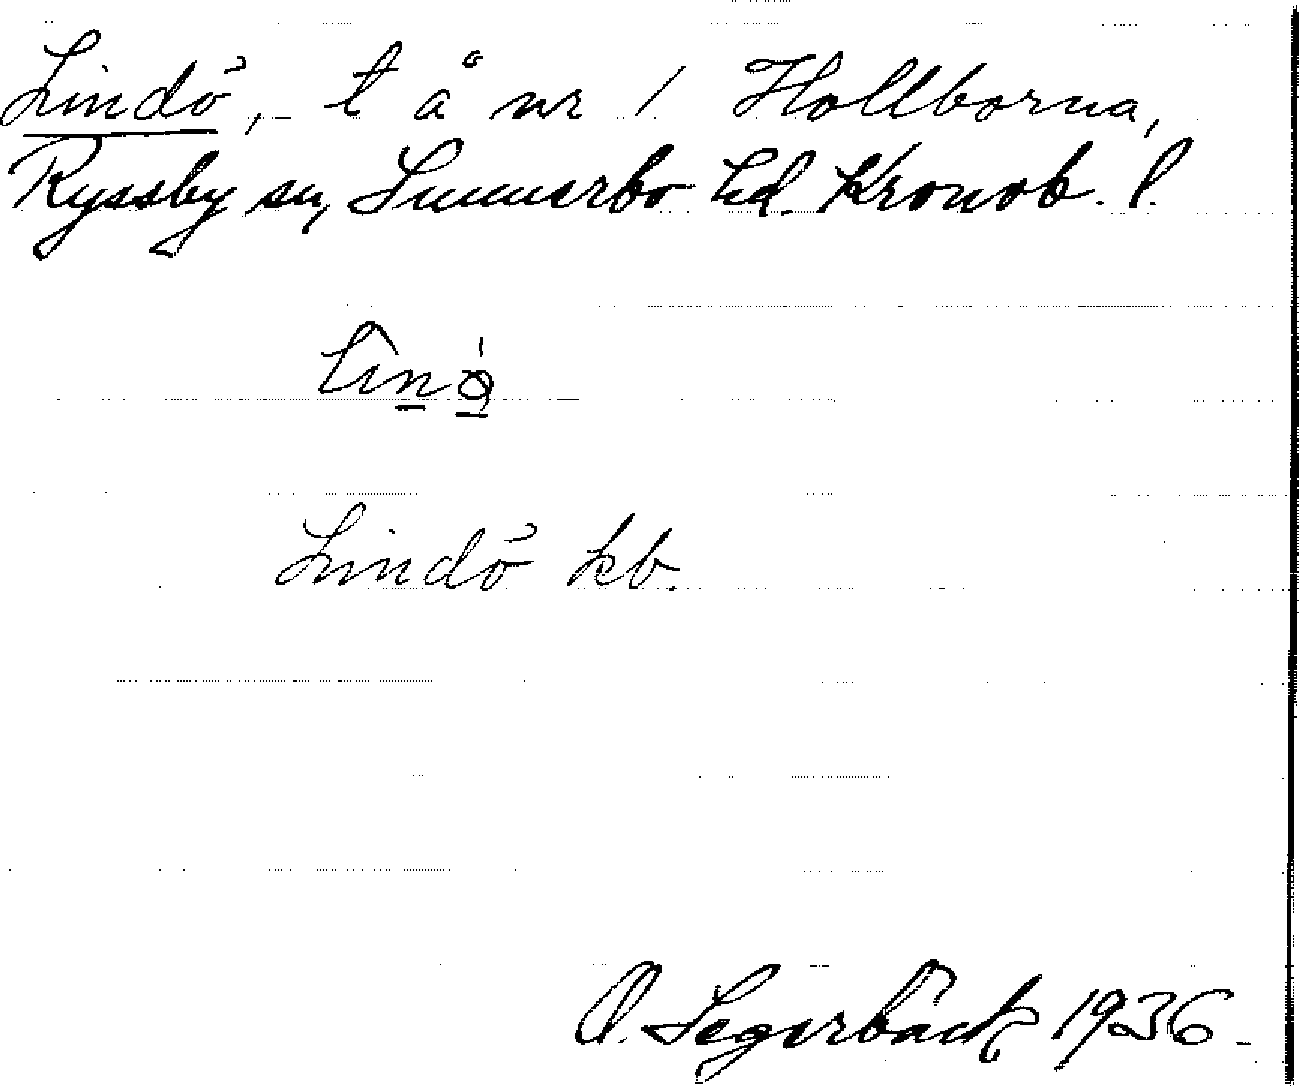 Lindö, t å nr 1 Hollborna,
Ryssby sn, Sunnerbo hd. Kronob. l.
Lindö kb.
O. Segerbäck 1936.